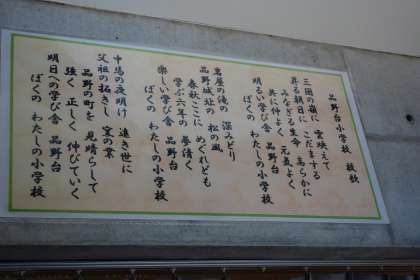 品野台小学校 校歌
三国の嶺に 雲映えて
昇る朝日に こだまする
みなぎる生命 高らかに
共に仲よく 元気よく
明るい学び舎 品野台
ぼくの わたしの小学校
岩屋の滝の 深みどり
品野城址の 松の風
春秋ここに めぐれども
学ぶ六年の 夢清く
楽しい学び舎 品野台
ぼくの わたしの小学校
中馬の夜明け 遠き世に
父祖の拓きし 窯の業
品野の町を 見晴らして
強く 正しく 伸びていく
明日への学び舎 品野台
ぼくの わたしの小学校